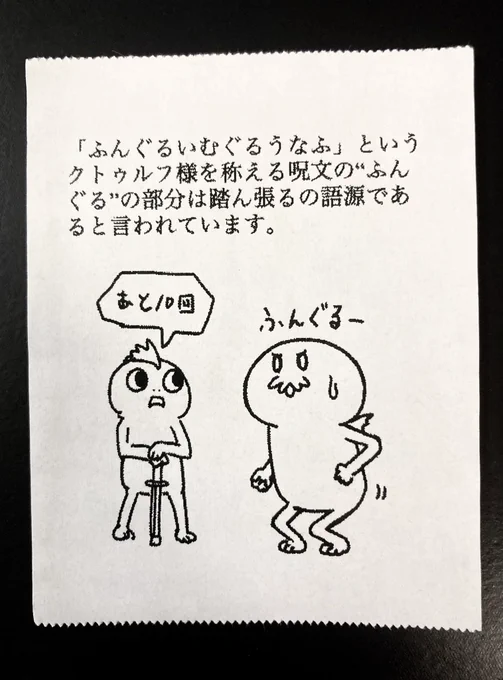 「ふんぐるいむぐるうなふ」という
クトゥルフ様を称える呪文の“ふん
ぐる”の部分は踏ん張るの語源であ
ると言われています。
あと10回
ふんぐるー